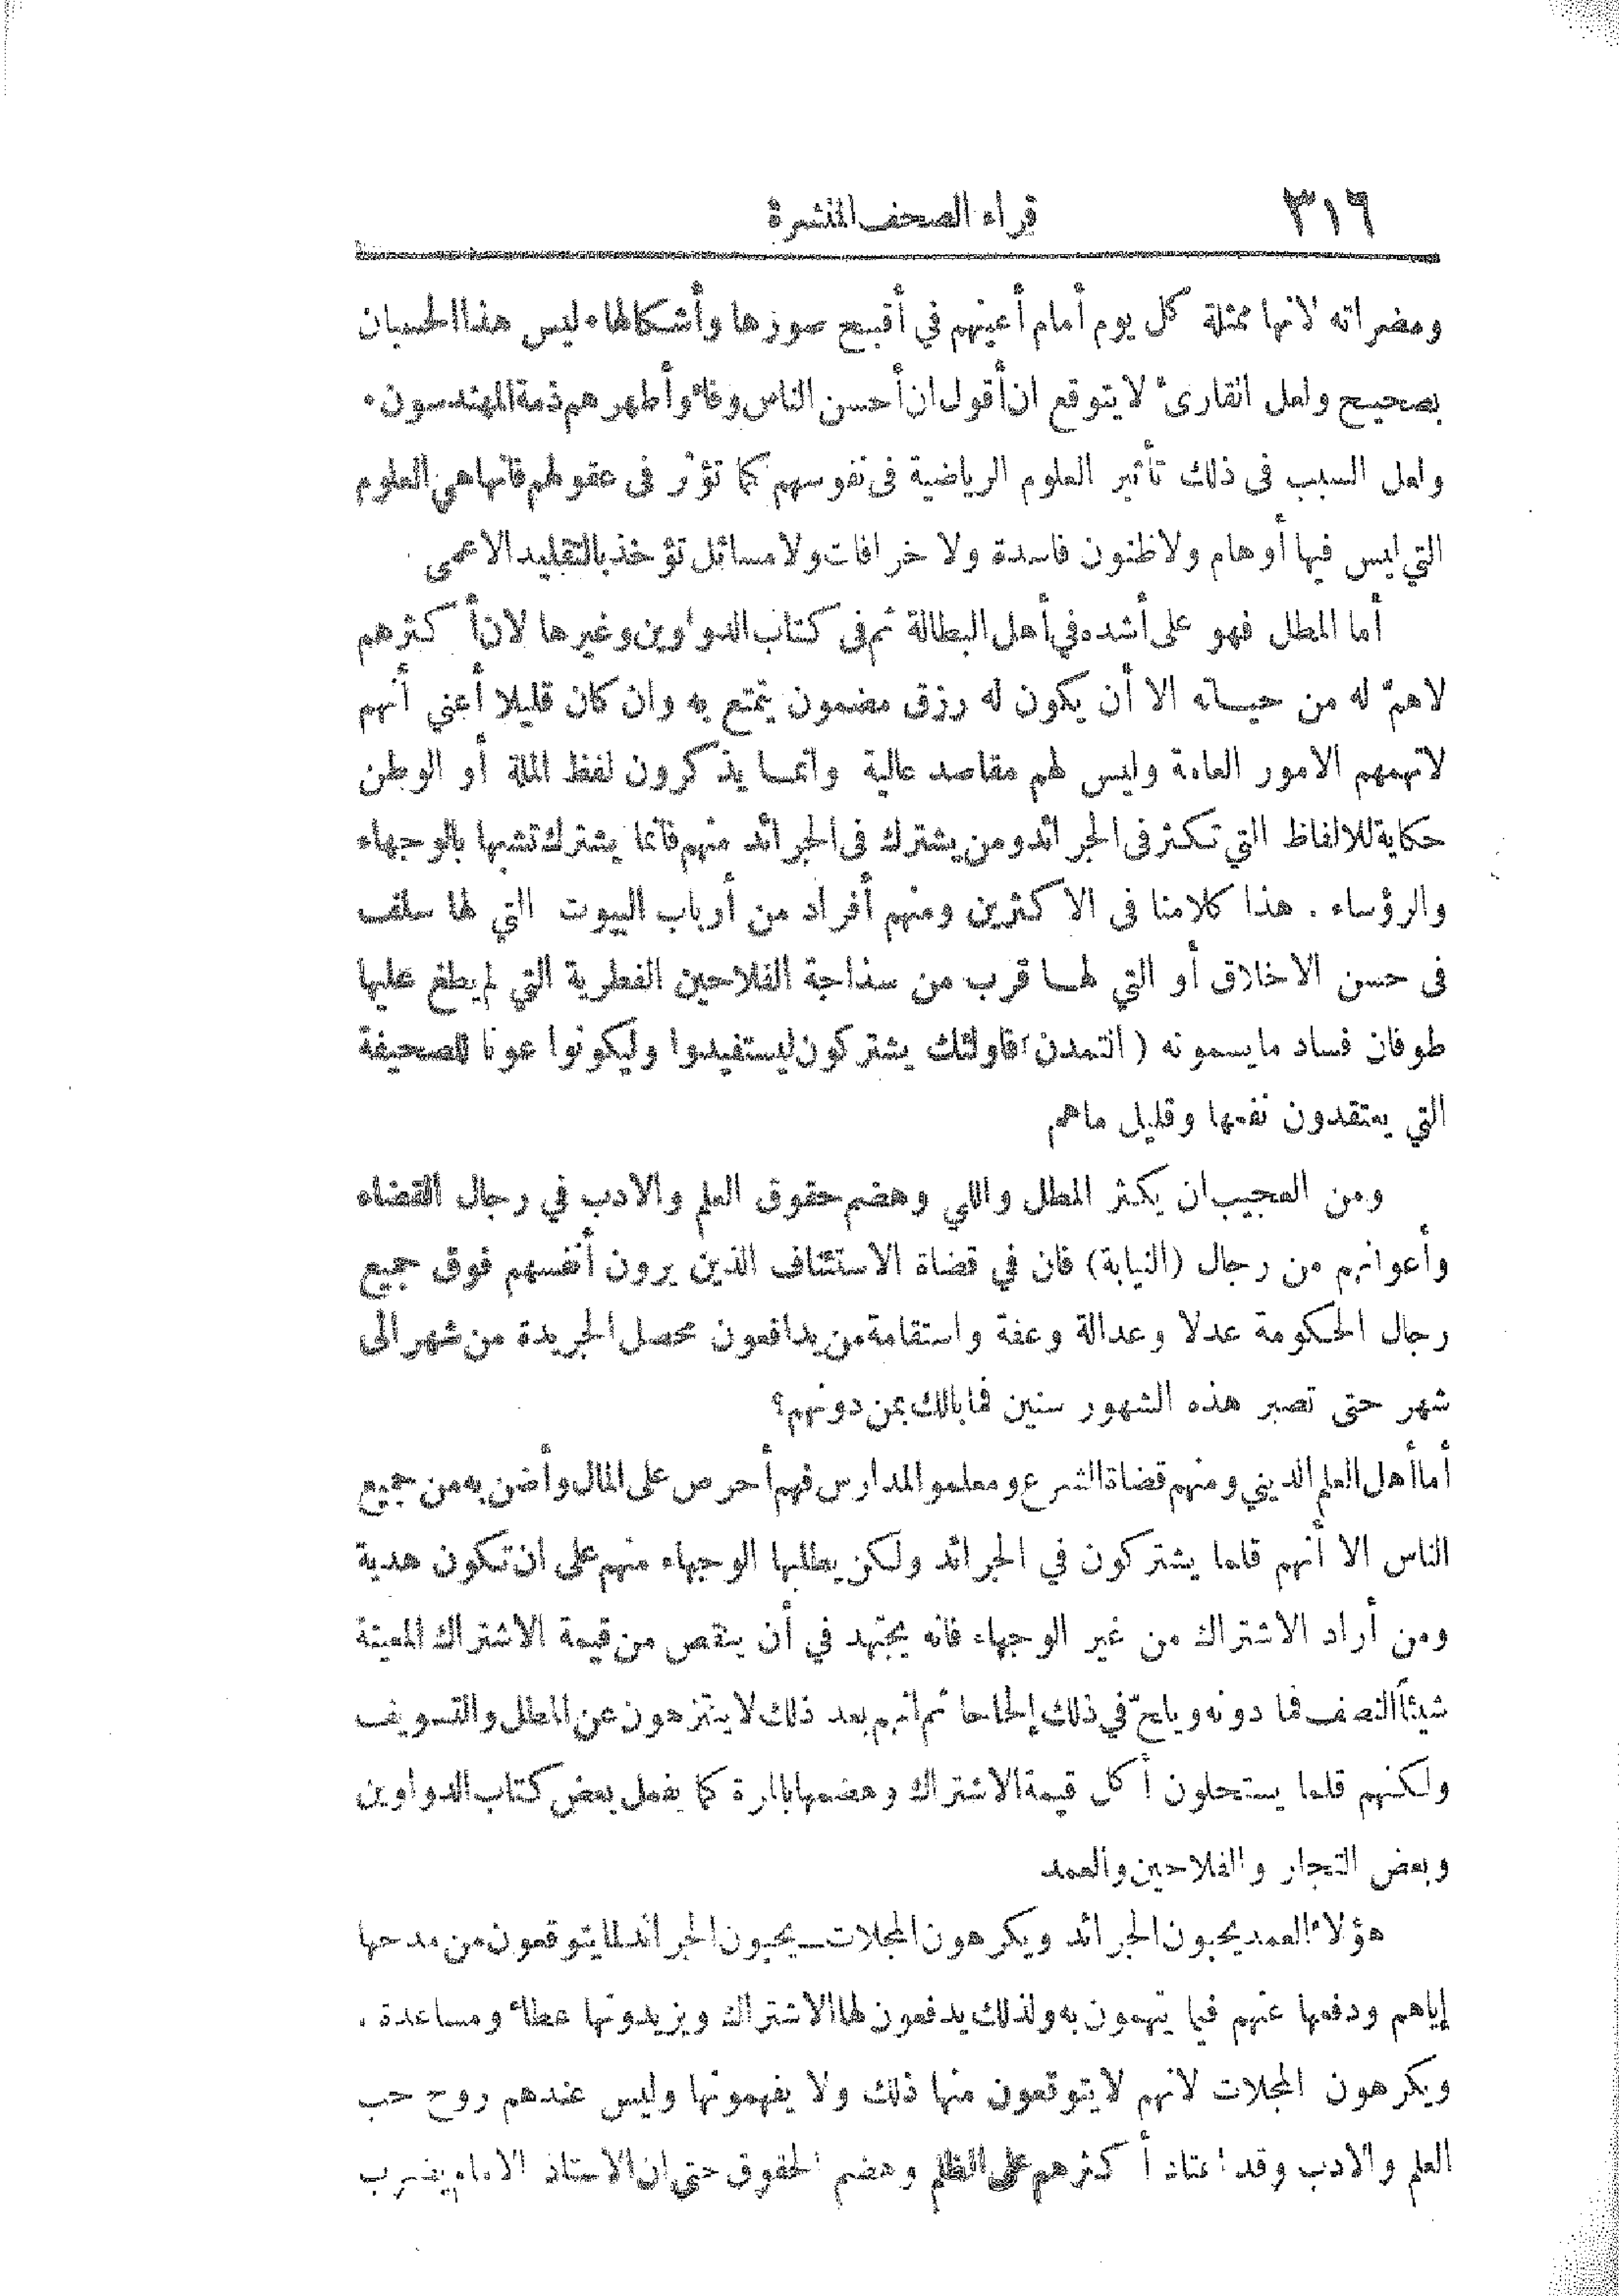 ٣١٦ قراء الصحف المنشرة
ومضراته لانها ممثلة كل يوم أمام أعينهم في أقبح صورها وأشكالها٠ ليس هذا الحسبان
بصحيح ولعل القارئ لا يتوقع ان أقول ان أحسن الناس وفاء وأطهرهم ذمة المهندسون ٠
ولعل السبب فى ذلك تأثير العلوم الرياضية فى نفوسهم كما تؤثر فى عقولهم فانها هي العلوم
التي ليس فيها أوهام ولا ظنون فاسدة ولا خرافات ولا مسائل تؤخذ بالتقليد الاعمى
أما المطل فهو على أشده في أهل البطالة ثم فى كتاب الدواوين وغيرها لان أكثرهم
لا همّ له من حياته الا أن يكون له رزق مضمون يتمتع به وان كان قليلا أعني أنهم
لا تهمهم الامور العامة وليس لهم مقاصد عالية وانما يذكرون لفظ الملة أو الوطن
حكاية للالفاظ التي تكثر فى الجرائد ومن يشترك فى الجرائد منهم فانما يشترك تشبها بالوجهاء
والرؤساء . هذا كلامنا فى الاكثرين ومنهم أفراد من أرباب البيوت التي لها سلف
فى حسن الاخلاق أو التي لهما قرب من سذاجة الفلاحين الفطرية التي لم يطغ عليها
طوفان فساد ما يسمونه ( التمدن ) فاولئك يشتركون ليستفيدوا وليكونوا عونا للصحيفة
التي يعتقدون نفعها وقليل ماهم
ومن العجيب ان يكثر المطل واللي وهضم حقوق العلم والادب في رجال القضاء
وأعوانهم من رجال (النيابة) فان في قضاة الاستئناف الذين يرون أنفسهم فوق جميع
رجال الحكومة عدلا وعدالة وعفة واستقامة من يدافعون محصل الجريدة من شهر الى
شهر حتى تصير هذه الشهور سنين فما بالك بمن دونهم؟
أما أهل العلم الديني ومنهم قضاة الشرع ومعلمو المدارس فهم أحرص على المال وأضن به من جميع
الناس الا أنهم قلما يشتركون في الجرائد ولكن يطلبها الوجهاء منهم على ان تكون هدية
ومن أراد الاشتراك من غير الوجهاء فانه يجتهد في أن ينقص من قيمة الاشتراك المعينة
شيئاً النصف فما دونه ويلحّ في ذلك إلحاحا ثم انهم بعد ذلك لا يتنزهون عن المطل والتسويف
ولكنهم قلما يستحلون أكل قيمة الاشتراك وهضمها بالمرة كما يفعل بعض كتاب الدواوين
وبعض التجار والفلاحين والعمد
هؤلاء العمد يحبون الجرائد ويكرهون المجلات ــ يحبون الجرائد لما يتوقعون من مدحها
إياهم ودفعها عنهم فيما يتهمون به ولذلك يدفعون لها الاشتراك ويزيدونها عطاء ومساعدة .
ويكرهون المجلات لانهم لا يتوقعون منها ذلك ولا يفهمونها وليس عندهم روح حب
العلم والادب وقد اعتاد أكثرهم على الظلم وهضم الحقوق حتى ان الاستاذ الامام يضرب